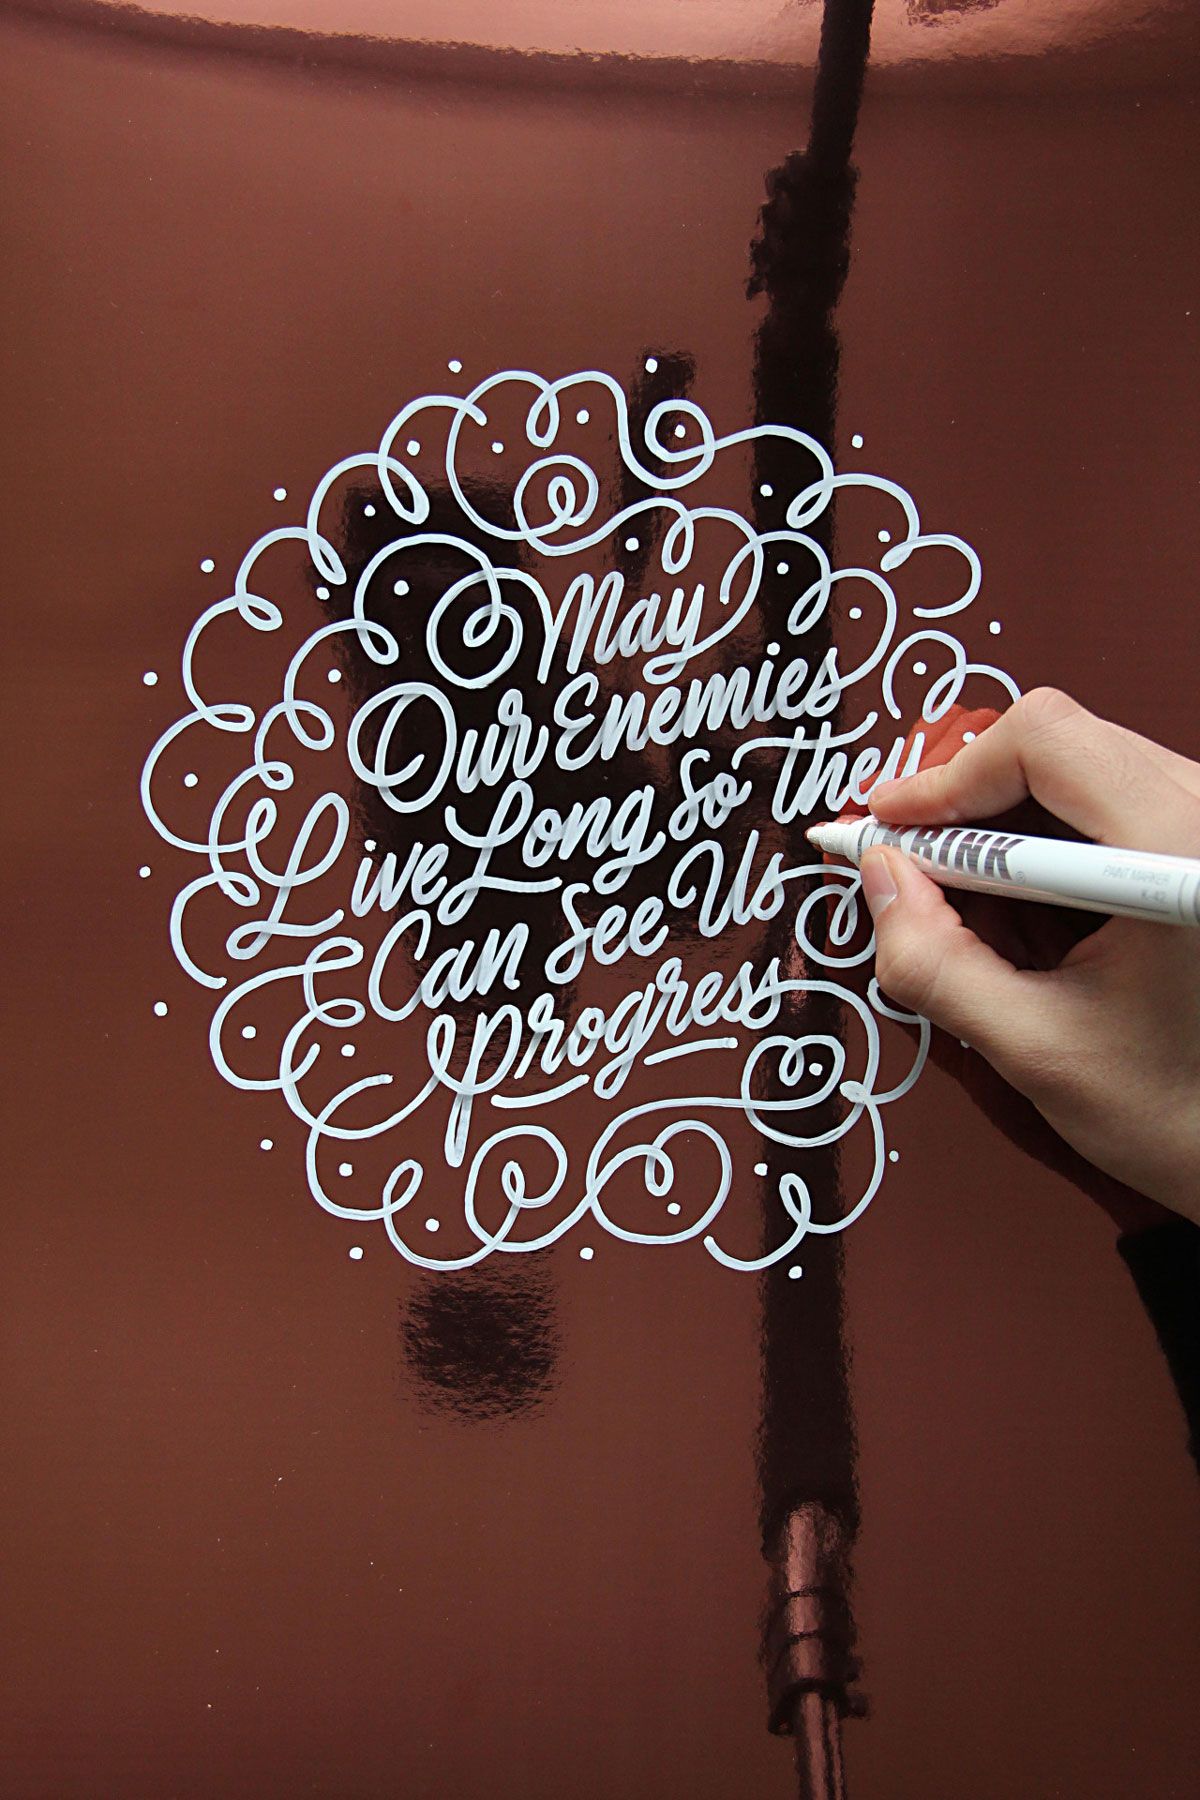 May
Our Enemies
Live Long So they
Can See Us
progress
KRINK
PAINT MARKER
K-42